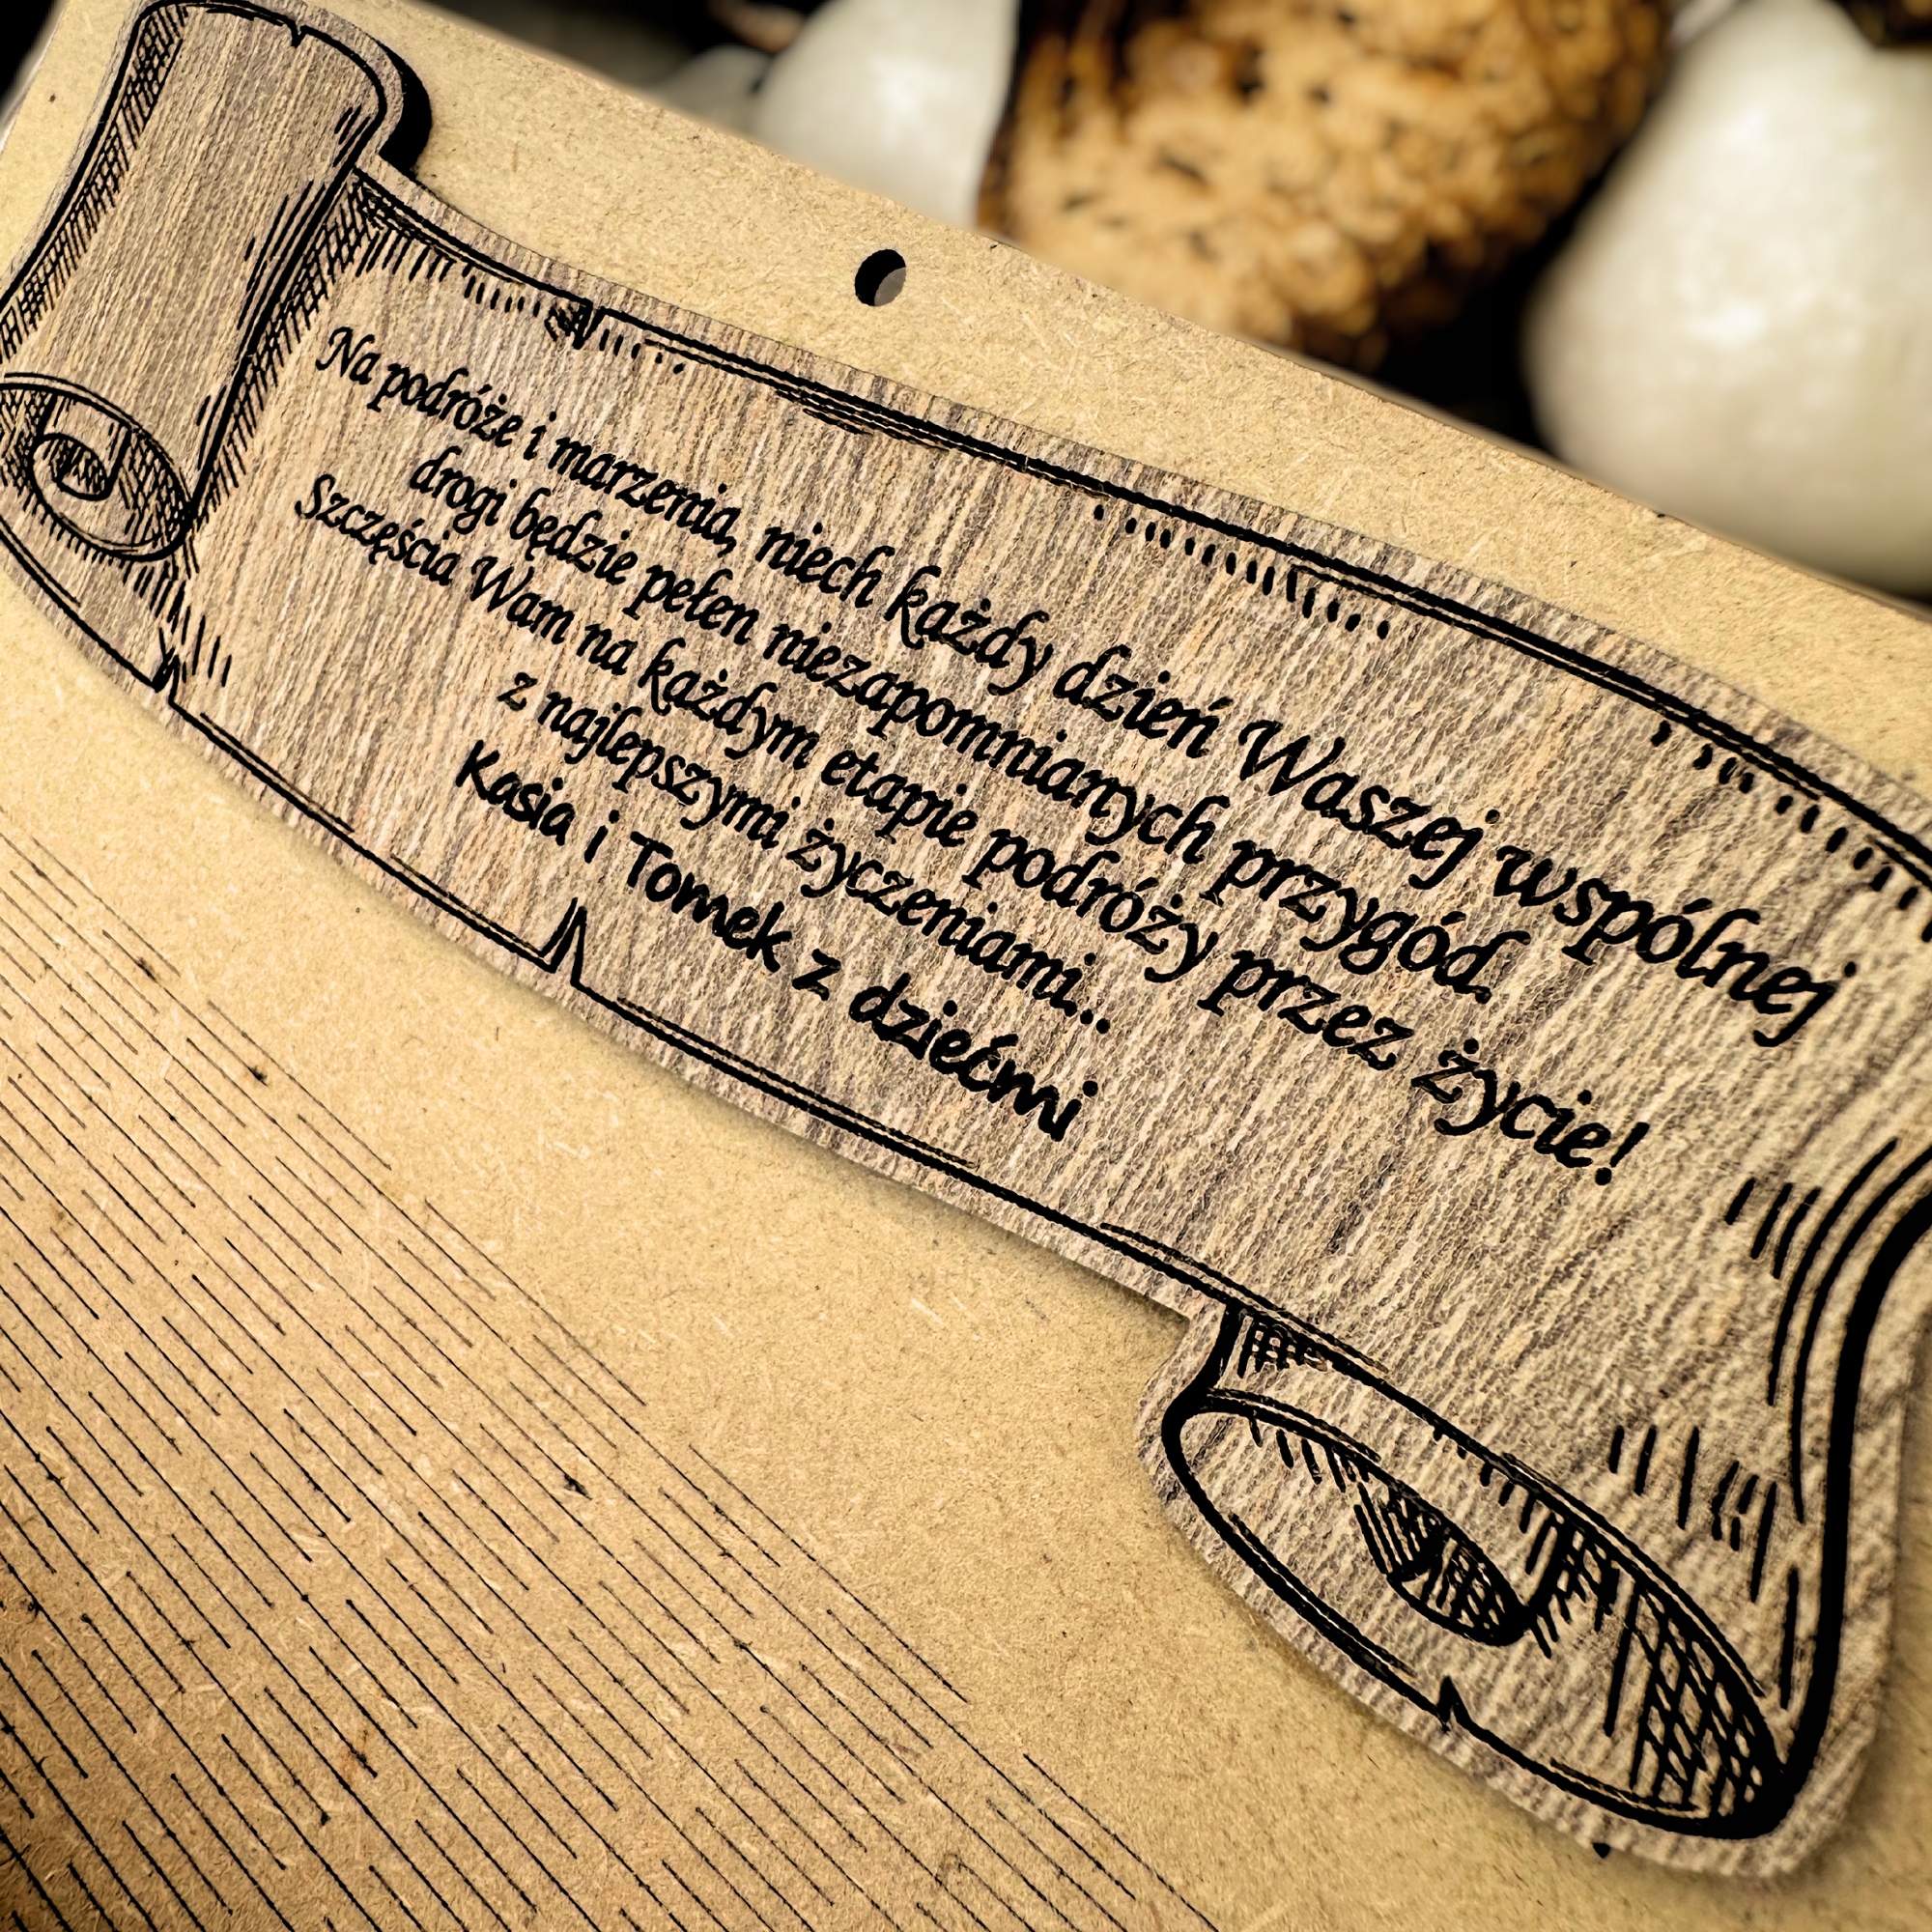 Na podróże i marzenia, niech każdy dzień Waszej wspólnej
drogi będzie pełen niezapomnianych przygód.
Szczęścia Wam na każdym etapie podróży przez życie!
z najlepszymi życzeniami..
Kasia i Tomek z dziećmi